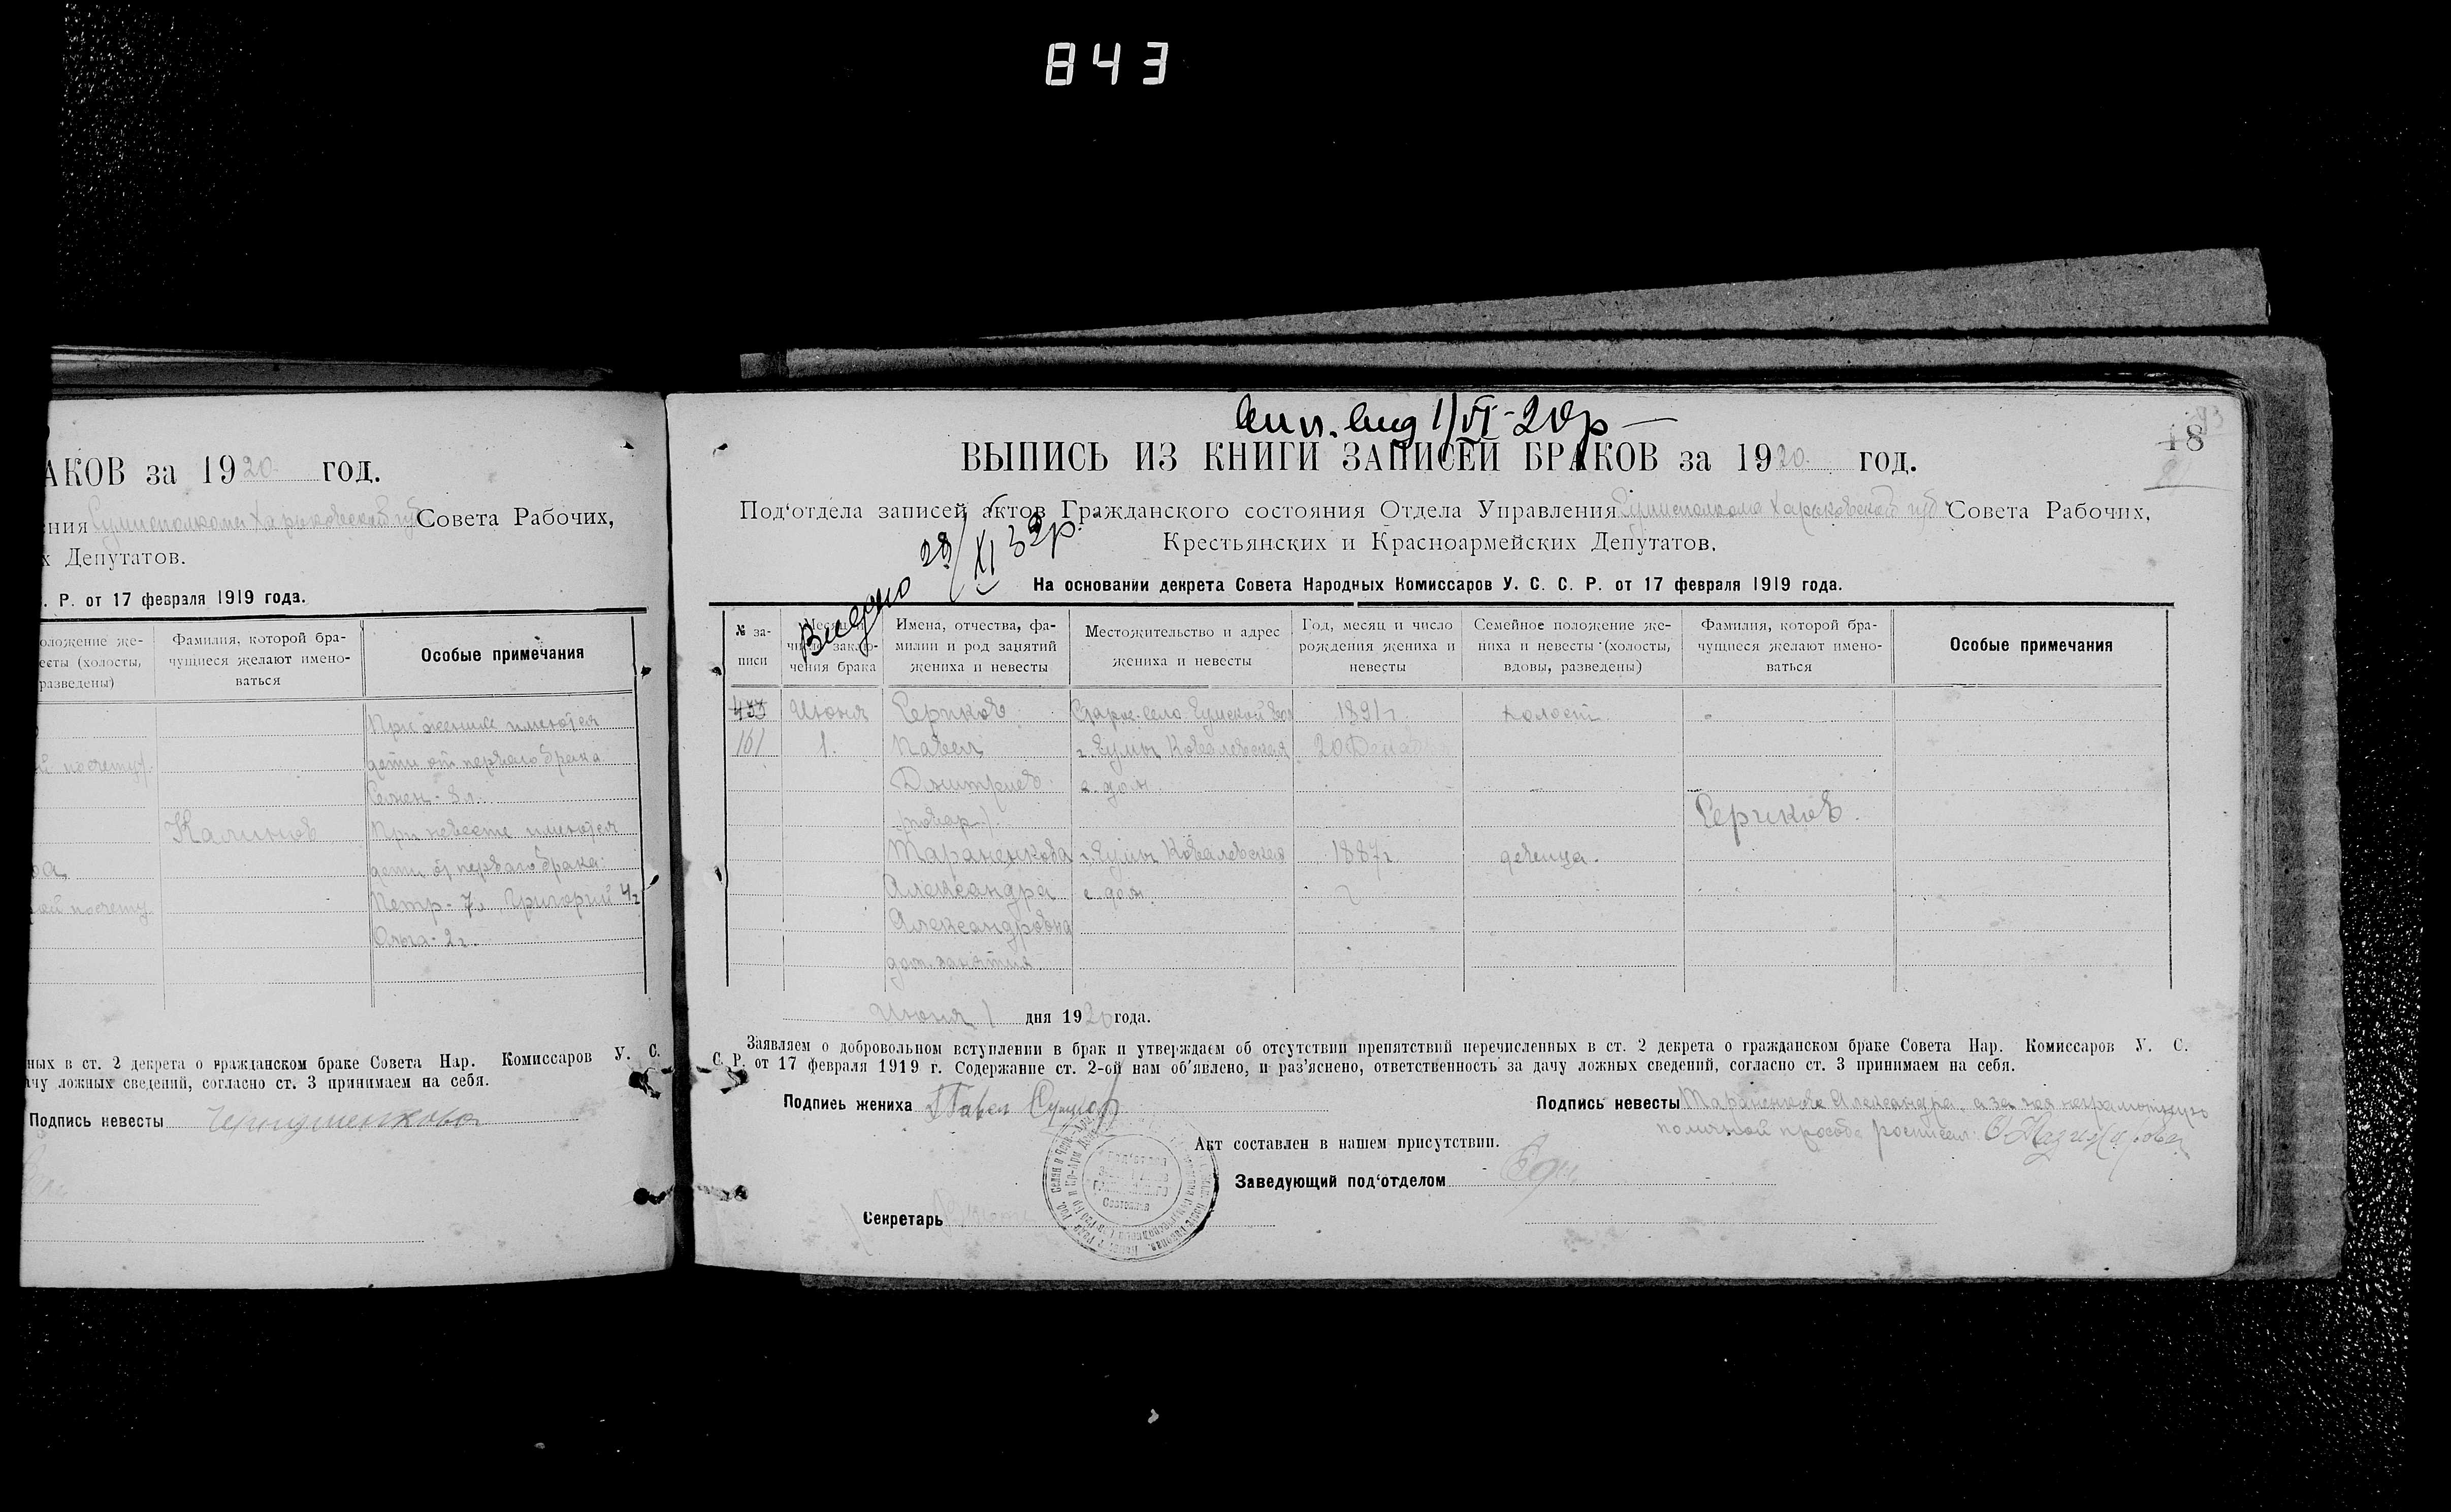 843
АКОВ за 1920 год.
ния Сумисполкома Харьковской губ Совета Рабочих,
х Депутатов.
. Р. от 17 февраля 1919 года.
оложение же-
есты (холосты,
разведены)
Фамилия, которой бра-
чущиеся желают имено-
ваться
Особые примечания
При женихе имеются
дети от первого брака
Семен - 8 л.
Калинов
При невесте имеются
дети от первого брака:
Петр - 7 л, Григорий 4 г
Ольга - 2 г.
ных в ст. 2 декрета о гражданском браке Совета Нар. Комиссаров У. С.
ачу ложных сведений, согласно ст. 3 принимаем на себя.
Подпись невесты
18
1/VI-20р
ВЫПИСЬ ИЗ КНИГИ ЗАПИСЕЙ БРАКОВ за 1920 год.
Под'отдела записей актов Гражданского состояния Отдела Управления Сумисполкома Харьковской губ Совета Рабочих,
Крестьянских и Красноармейских Депутатов.
Видано 29/XI 32р.
На основании декрета Совета Народных Комиссаров У. С. С. Р. от 17 февраля 1919 года.
№ за-
писи
Месяц и
число заклю-
чения брака
Имена, отчества, фа-
милии и род занятий
жениха и невесты
Местожительство и адрес
жениха и невесты
Год, месяц и число
рождения жениха и
невесты
Семейное положение же-
ниха и невесты (холосты,
вдовы, разведены)
Фамилия, которой бра-
чущиеся желают имено-
ваться
Особые примечания
433 Июня Сериков Старое село Сумской вол 1891 г. холост
161 1. Павел г. Сумы Ковалевская 20 Декаб
Дмитриев с. дом.
повар
Сериков.
Тараненкова г. Сумы Ковалевская 1887 г. девица.
Александра с. дом.
Александровна
дом. занятия
Июня 1 дня 1920 года.
Заявляем о добровольном вступлении в брак и утверждаем об отсутствии препятствий перечисленных в ст. 2 декрета о гражданском браке Совета Нар. Комиссаров У. С.
С. Р. от 17 февраля 1919 г. Содержание ст. 2-ой нам об'явлено, и раз'яснено, ответственность за дачу ложных сведений, согласно ст. 3 принимаем на себя.
Подпись жениха Павел
Подпись невесты Тараненкова Александра, а за нея неграмотную
по личной просьбе росписал:
Акт составлен в нашем присутствии.
Заведующий под'отделом
Секретарь